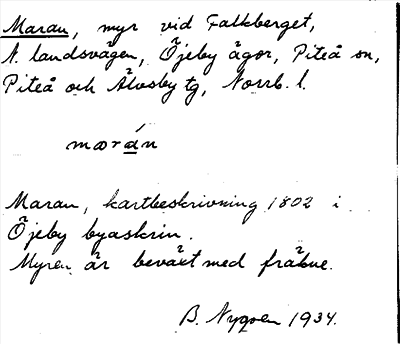 Maran, myr vid Falkberget,
N. landsvägen, Öjeby ägor, Piteå sn,
Piteå och Älvsby tg, Norrb. l.
marán
Maran, kartbeskrivning 1802 i
Öjeby byaskrin.
Myren är beväxt med fräkne.
B. Nyqven 1934.